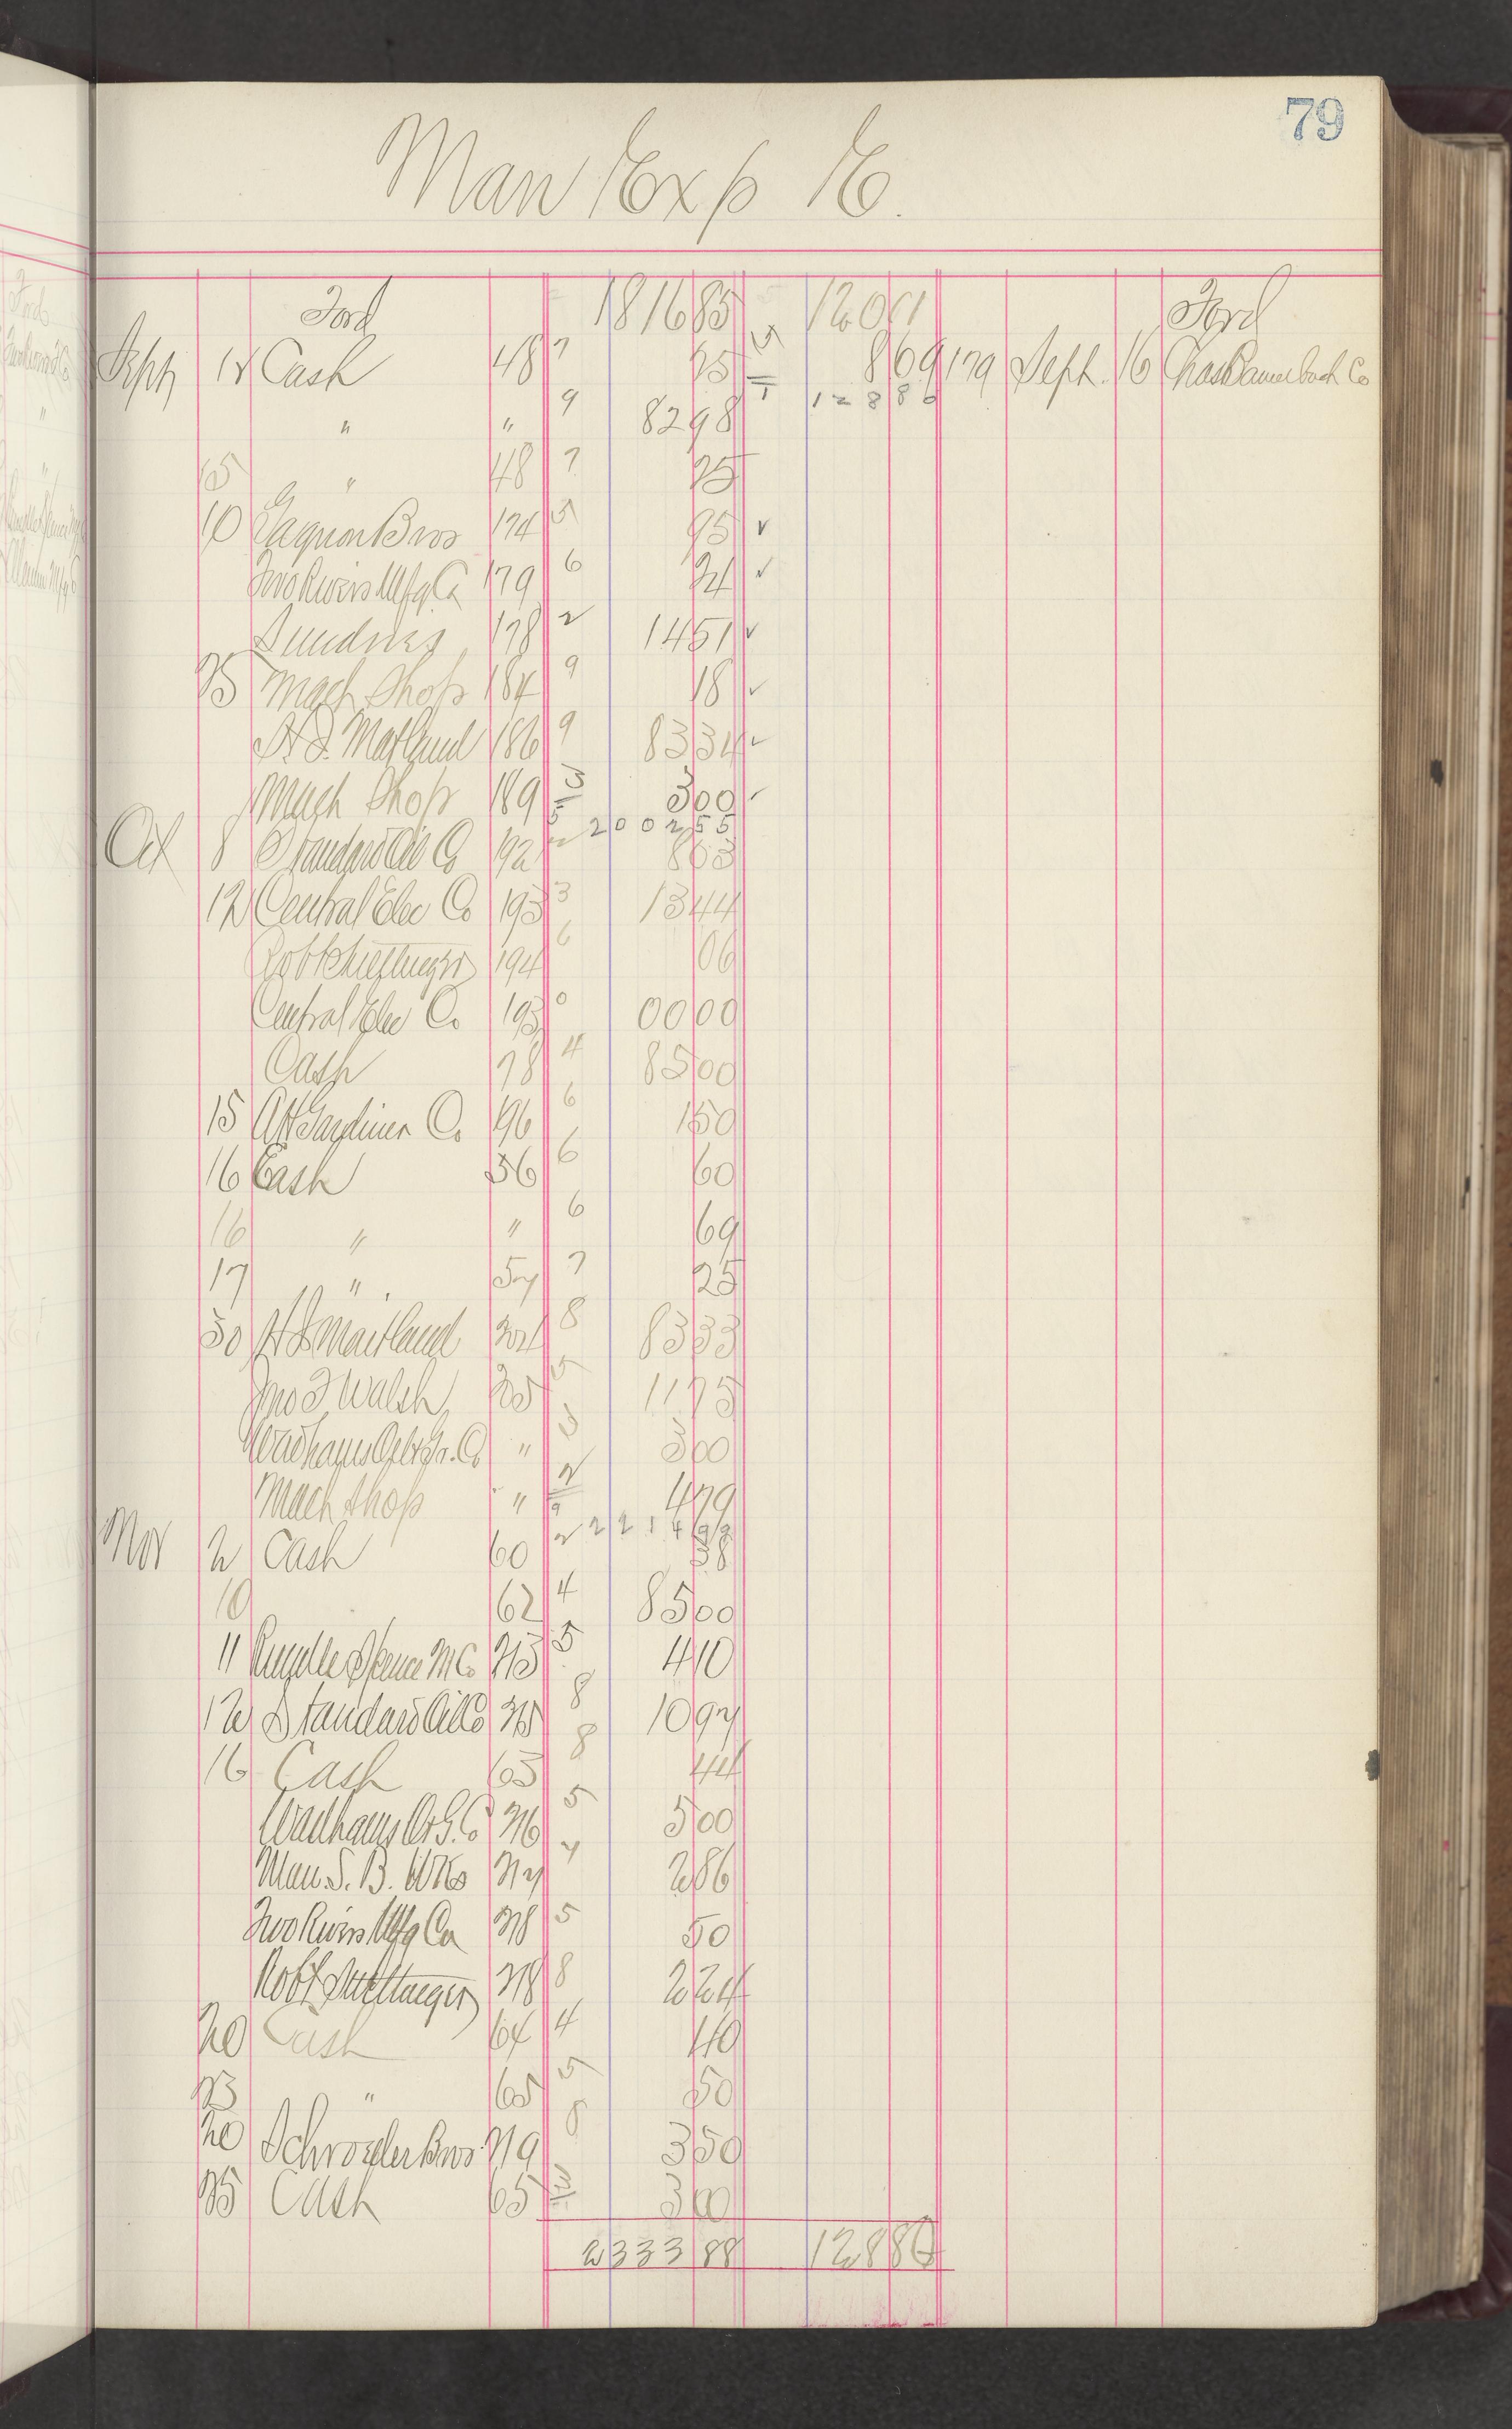 79
Man Exp E.
Ford 1816 85 120 17 Ford
Sept 14 Cash 48 7 25 8 69 179 Sept. 16 Chas Baumbach Co
" " 9 82 98 128 86
15 " 48 7 25
10 Gagnon Bros 174 5 95 ✓
Two Rivers Mfg Co 179 6 24 ✓
Sundries 178 2 14 51 ✓
25 Mach Shop 184 9 18 ✓
A. D. Maitland 186 9 83 34 ✓
Mach Shop 189 3 3 00 ✓
2002 55
Oct 8 Standard Oil Co 192 2 8 63
12 Central Elec Co 193 3 13 44
194 6 06
Central Elec Co 193 0 00 00
Cash 78 4 85 00
15 Gardiner Co 196 6 1 50
16 Cash 56 6 60
16 " " 6 69
17 " 57 7 25
30 Maitland 204 8 83 33
Jno J Walsh 205 5 11 75
Wadhams Oil & Gr. Co " 3 3 00
Mach Shop " 2 4 79
2214
Nov 2 Cash 60 2 38
10 62 4 85 00
11 M Co 213 5 4 10
12 Standard Oil Co 215 8 10 97
16 Cash 63 8 44
Wadhams O & G. Co 216 5 5 00
Man S. B. Wks 217 7 2 86
Two Rivers Mfg Co 218 5 50
Robt 218 8 2 24
20 Cash 64 4 40
23 " 65 5 50
20 Schroeder Bros 219 8 3 50
25 Cash 65 3 3 00
2333 88 128 86